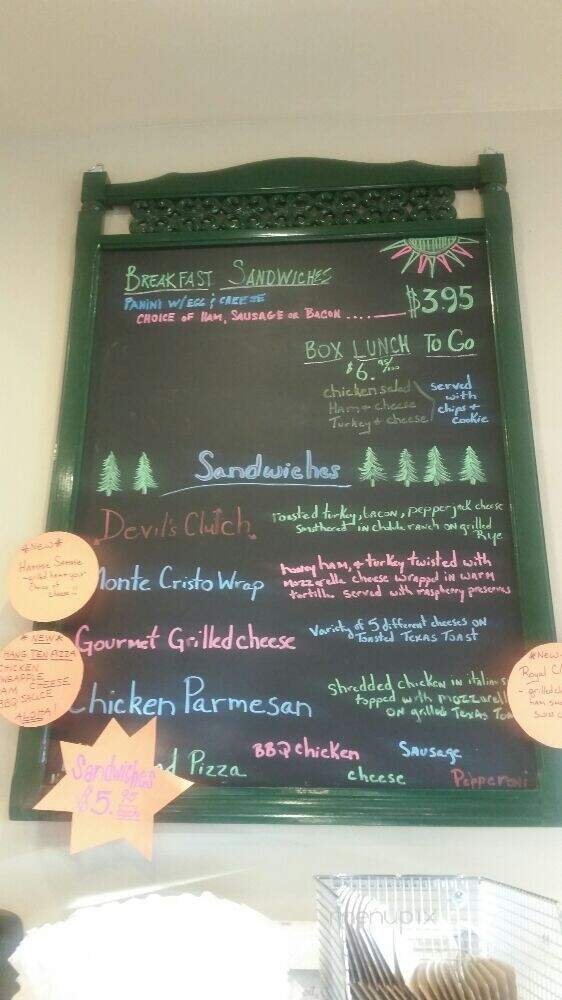 BREAKFAST SANDWICHES
PANINI W/EGG & CHEESE
CHOICE OF HAM, SAUSAGE OR BACON .... $3.95
BOX LUNCH TO GO
$6.
chicken salad
Ham & cheese
Turkey & cheese
served
with
chips +
cookie
Sandwiches
Devil's Clutch
roasted turkey, bacon, pepperjack cheese
smothered in ranch on grilled
Rye
Monte Cristo Wrap
honey ham, & turkey twisted with
mozzarella cheese wrapped in warm
tortilla. served with raspberry preserves
Gourmet Grilled cheese
Variety of 5 different cheeses on
Toasted Texas Toast
Chicken Parmesan
shredded chicken in italian
topped with
on grilled Texas
Pizza
BBQ chicken
Sausage
cheese
Pepperoni
*NEW*
- grilled ham + your
choice of
cheese
*NEW*
HANG TEN PIZZA
CHICKEN
PINEAPPLE
HAM CHEESE
BBQ SAUCE
ALOHA!
Sandwiches
$5.95
*NEW
Royal